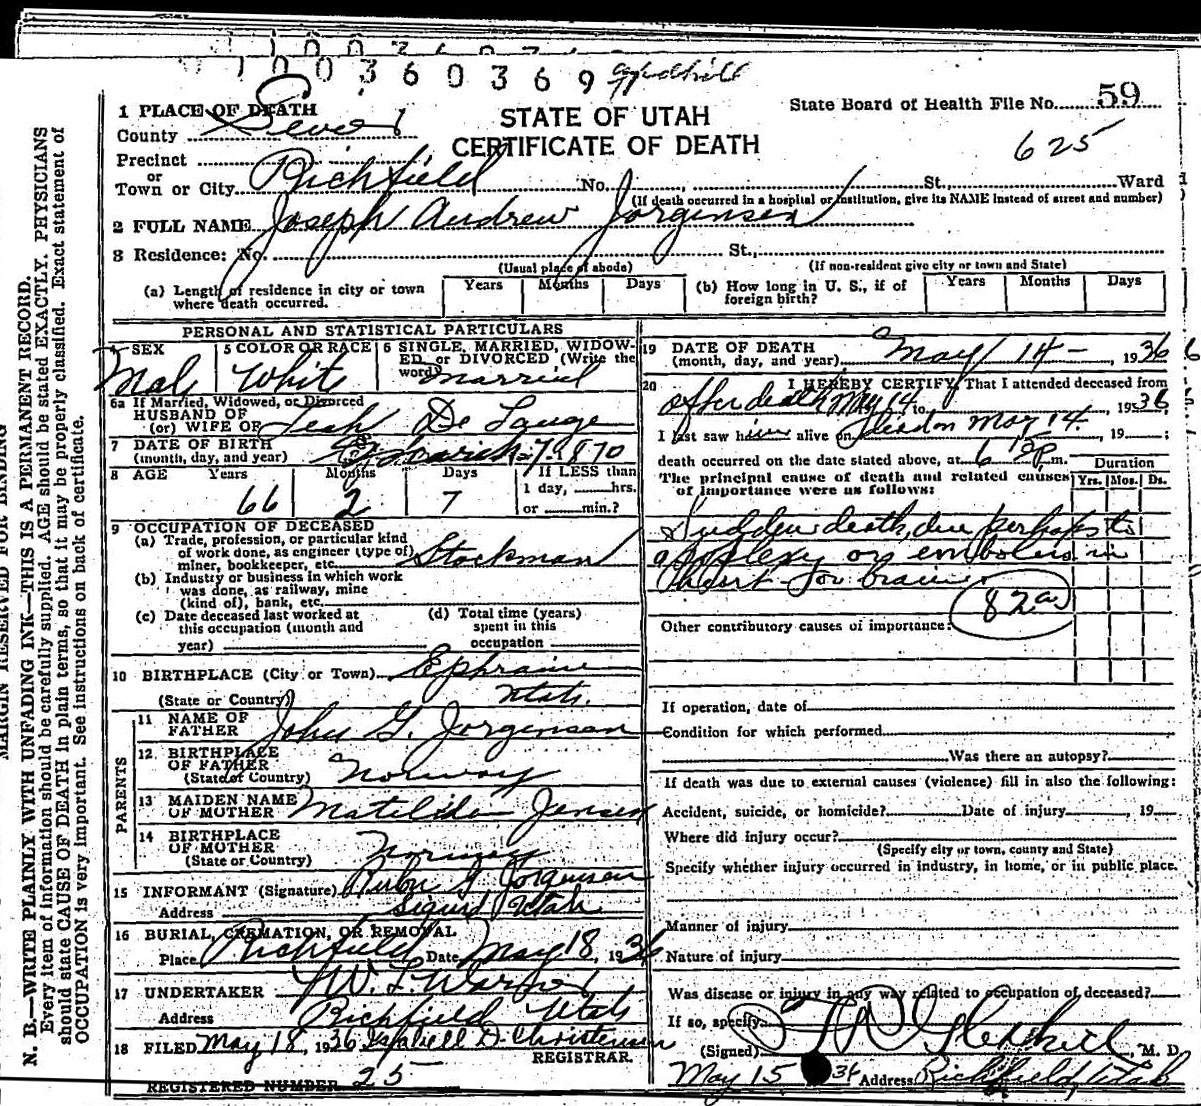 1 0 0 3 6 0 3 6 9
1 PLACE OF DEATH
STATE OF UTAH
State Board of Health File No. 59
County Sevier
CERTIFICATE OF DEATH
625
Precinct
or
Town or City Richfield No. , St., Ward
(If death occurred in a hospital or institution, give its NAME instead of street and number)
2 FULL NAME Joseph Andrew Jorgensen
3 Residence: No. St.,
(Usual place of abode) (If non-resident give city or town and State)
(a) Length of residence in city or town where death occurred. Years Months Days
(b) How long in U. S., if of foreign birth? Years Months Days
PERSONAL AND STATISTICAL PARTICULARS
4 SEX Male
5 COLOR OR RACE White
6 SINGLE, MARRIED, WIDOWED, or DIVORCED (Write the word) Married
6a If Married, Widowed, or Divorced
HUSBAND OF
(or) WIFE OF Leah De Lauge
7 DATE OF BIRTH
(month, day, and year) March 7-1870
8 AGE Years Months Days If LESS than
1 day, hrs.
66 2 7 or min.?
9 OCCUPATION OF DECEASED
(a) Trade, profession, or particular kind
of work done, as engineer (type of)
miner, bookkeeper, etc. Stockman
(b) Industry or business in which work
was done, as railway, mine
(kind of), bank, etc.
(c) Date deceased last worked at
this occupation (month and
year)
(d) Total time (years)
spent in this
occupation
10 BIRTHPLACE (City or Town) Ephraim
(State or Country) Utah.
PARENTS
11 NAME OF
FATHER John G. Jorgensen
12 BIRTHPLACE
OF FATHER
(State or Country) Norway
13 MAIDEN NAME
OF MOTHER Matilda Jensen
14 BIRTHPLACE
OF MOTHER
(State or Country) Norway
15 INFORMANT (Signature) G Jorgensen
Address Sigurd Utah
16 BURIAL, CREMATION, OR REMOVAL
Place Richfield Date May 18, 1936
17 UNDERTAKER W. L. Warner
Address Richfield Utah
18 FILED May 18, 1936 Isabell D. Christensen
REGISTRAR.
REGISTERED NUMBER 25
19 DATE OF DEATH
(month, day, and year) May 14-, 1936
20 I HEREBY CERTIFY, That I attended deceased from
after death May 14 to , 1936
I last saw him alive on dead on May 14, 19 ;
death occurred on the date stated above, at 6 p m.
Duration
The principal cause of death and related causes
of importance were as follows:
Yrs. Mos. Ds.
Sudden death, due perhaps to
apoplexy or embolus in
heart or brain
82a
Other contributory causes of importance:
If operation, date of
Condition for which performed
Was there an autopsy?
If death was due to external causes (violence) fill in also the following:
Accident, suicide, or homicide? Date of injury , 19
Where did injury occur?
(Specify city or town, county and State)
Specify whether injury occurred in industry, in home, or in public place.
Manner of injury
Nature of injury
Was disease or injury in any way related to occupation of deceased?
If so, specify
(Signed) Gledhill, M. D.
May 15 36 Address Richfield, Utah
MARGIN RESERVED FOR BINDING
N. B.—WRITE PLAINLY WITH UNFADING INK—THIS IS A PERMANENT RECORD.
Every item of information should be carefully supplied. AGE should be stated EXACTLY. PHYSICIANS
should state CAUSE OF DEATH in plain terms, so that it may be properly classified. Exact statement of
OCCUPATION is very important. See instructions on back of certificate.